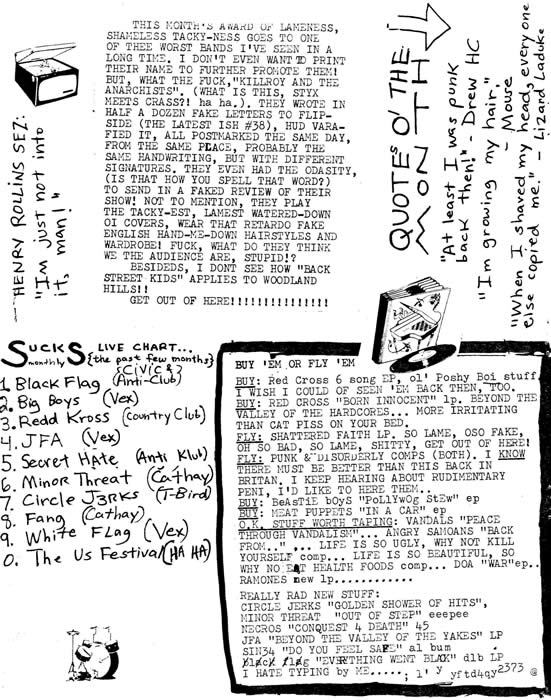 THIS MONTH'S AWARD OF LAMENESS,
SHAMELESS TACKY-NESS GOES TO ONE
OF THEE WORST BANDS I'VE SEEN IN A
LONG TIME. I DON'T EVEN WANT TO PRINT
THEIR NAME TO FURTHER PROMOTE THEM!
BUT, WHAT THE FUCK,"KILLROY AND THE
ANARCHISTS". (WHAT IS THIS, STYX
MEETS CRASS?! ha ha.). THEY WROTE IN
HALF A DOZEN FAKE LETTERS TO FLIP-
SIDE (THE LATEST ISH #38), HUD VARA-
FIED IT, ALL POSTMARKED THE SAME DAY,
FROM THE SAME PLACE, PROBABLY THE
SAME HANDWRITING, BUT WITH DIFFERENT
SIGNATURES. THEY EVEN HAD THE ODASITY,
(IS THAT HOW YOU SPELL THAT WORD?)
TO SEND IN A FAKED REVIEW OF THEIR
SHOW! NOT TO MENTION, THEY PLAY
THE TACKY-EST, LAMEST WATERED-DOWN
OI COVERS, WEAR THAT RETARDO FAKE
ENGLISH HAND-ME-DOWN HAIRSTYLES AND
WARDROBE! FUCK, WHAT DO THEY THINK
WE THE AUDIENCE ARE, STUPID!?
BESIDEDS, I DONT SEE HOW "BACK
STREET KIDS" APPLIES TO WOODLAND
HILLS!!
GET OUT OF HERE!!!!!!!!!!!!!!!
—HENRY ROLLINS SEZ:
"I'm just not into
it, man!"
QUOTES O' THE
MONTH
"At least I was punk
back then!" - Drew HC
"I'm growing my hair."
- Mouse
"When I shaved my head, everyone
else copied me." - Lizard Laduke
SUCKS LIVE CHART...
monthly {the past few months}
1. Black Flag (Anti-Club)
2. Big Boys (Vex)
3. Redd Kross (country Club)
4. JFA (Vex)
5. Secret Hate (Anti Klub)
6. Minor Threat (Cathay)
7. Circle J3RKs (T-Bird)
8. Fang (Cathay)
9. White FLag (Vex)
0. The Us Festival (HA HA)
BUY 'EM OR FLY 'EM
BUY: Red Cross 6 song EP, ol' Poshy Boi stuff.
I WISH I COULD OF SEEN 'EM BACK THEN, TOO.
BUY: RED CROSS "BORN INNOCENT" lp. BEYOND THE
VALLEY OF THE HARDCORES... MORE IRRITATING
THAN CAT PISS ON YOUR BED.
FLY: SHATTERED FAITH LP. SO LAME, OSO FAKE,
OH SO BAD, SO LAME, SHITTY, GET OUT OF HERE!
FLY: PUNK & DISORDERLY COMPS (BOTH). I KNOW
THERE MUST BE BETTER THAN THIS BACK IN
BRITAN. I KEEP HEARING ABOUT RUDIMENTARY
PENI, I'D LIKE TO HERE THEM..
BUY: BeAsTiE bOyS "PoLlYwOg StEw" ep
BUY: MEAT PUPPETS "IN A CAR" ep
O.K. STUFF WORTH TAPING: VANDALS "PEACE
THROUGH VANDALISM"... ANGRY SAMOANS "BACK
FROM.." ... LIFE IS SO UGLY, WHY NOT KILL
YOURSELF comp... LIFE IS SO BEAUTIFUL, SO
WHY NO EAT HEALTH FOODS comp... DOA "WAR"ep..
RAMONES new lp............
REALLY RAD NEW STUFF:
CIRCLE JERKS "GOLDEN SHOWER OF HITS",
MINOR THREAT "OUT OF STEP" eeepee
NECROS "CONQUEST 4 DEATH" 45
JFA "BEYOND THE VALLEY OF THE YAKES" LP
SIN34 "DO YOU FEEL SAFE" al bum
black flag "EVERYTHING WENT BLACK" dlb LP
I HATE TYPING by ME.....; l' y yftd4qy2373 @